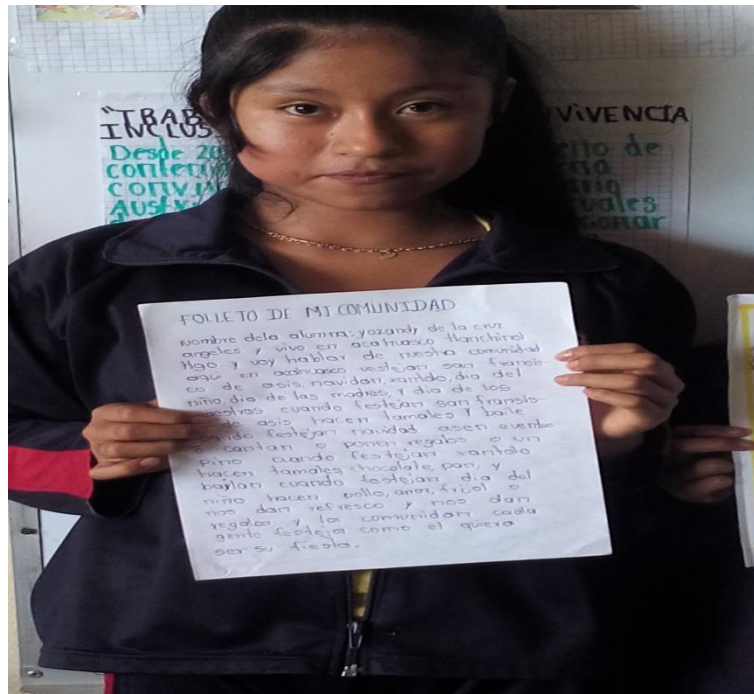 "TRAB
INCLUS
VIVENCIA
Desde 20
conte
convi
Aust
de
ria
ario
uales
cionar
FOLLETO DE MI COMUNIDAD
nombre dela alumna: yozandy de la cruz
angeles y vivo en acatnasco tlanchinol
Hgo y voy hablar de nuestra comunidad
aqui en vestejan san fransis-
co de asis, navidan, xantolo, dia del
niño, dia de las madres, y dia de los
maestros cuando festejan san fransis-
de asis hacen tamales y baile
festejan navidad asen eventos
o cantan o ponen regalos o un
pino cuando festejan xantolo
hacen tamales chocolate, pan, y
baylan cuando festejan dia del
niño hacen pollo, arroz, frijol o
nos dan refresco y nos dan
regalos y la comunidan cada
gente festeja como el quiera
ser su fiesta.